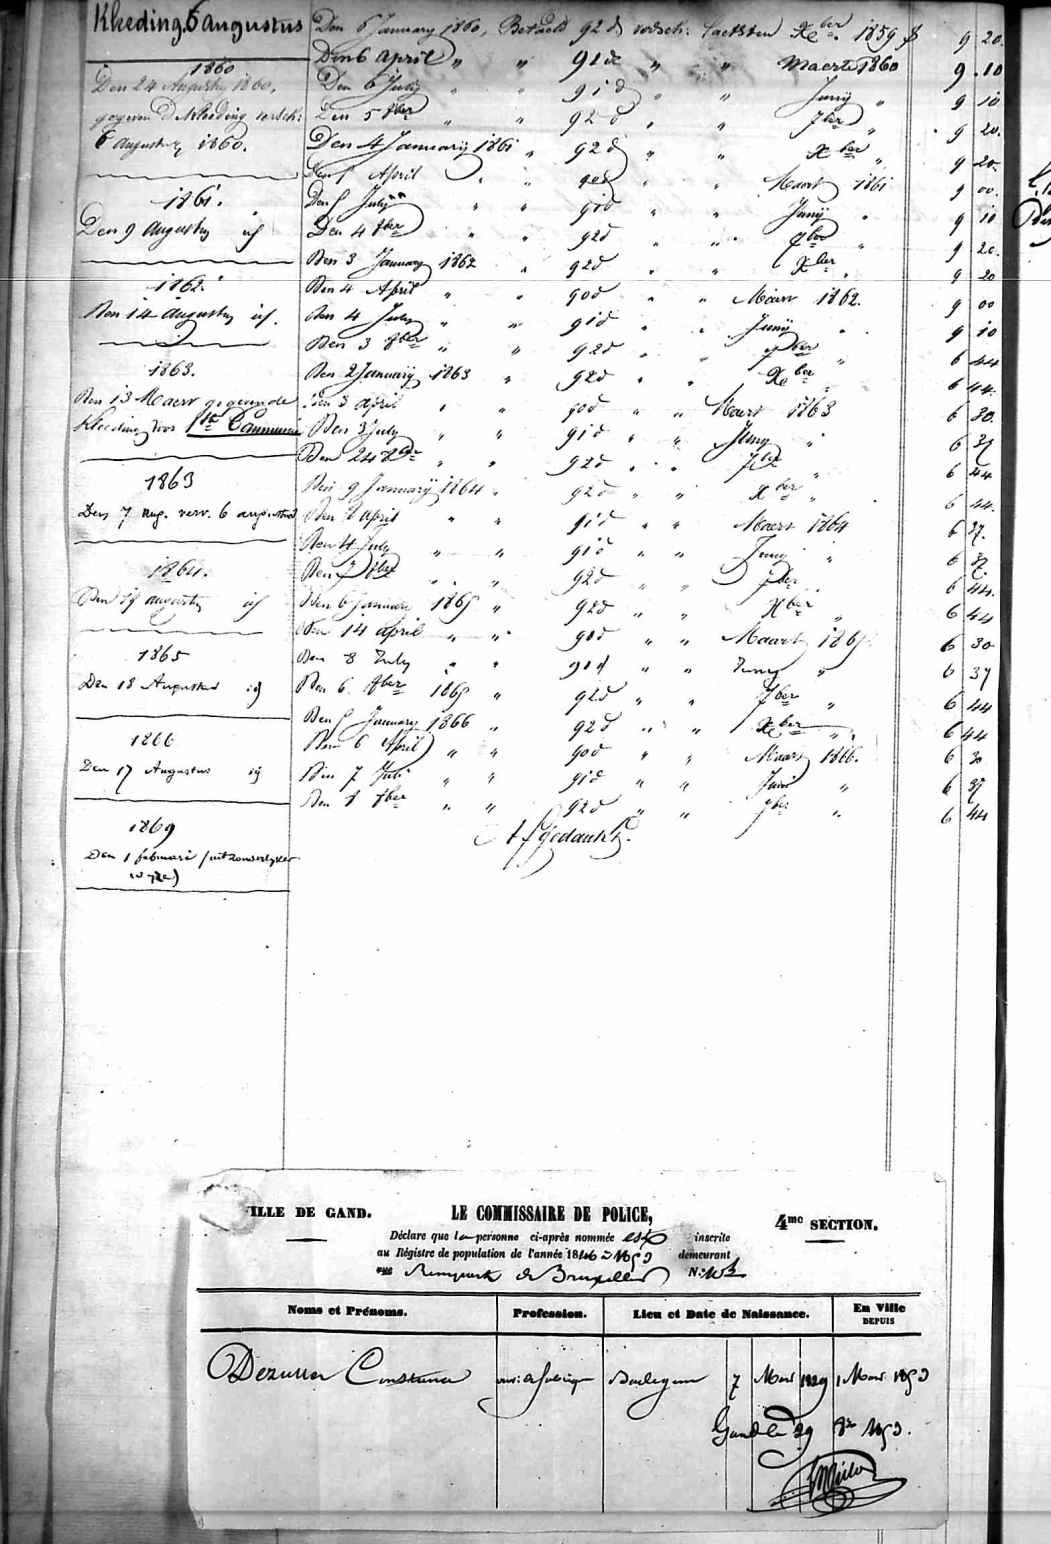 Kleeding. 6 augustus
1860
Den 24 Augusty 1860,
gegeven D kleeding versch:
6 augusty 1860.
1861.
Den 9 Augusty id
1862.
Den 14 augusty id.
1863.
Den 13 Maert gegeven de
kleeding voor 1te Communie
1863
Den 7 aug. verv. 6 augustus
1864.
Den 19 augusty id
1865
Den 18 Augustus id
1866
Den 17 Augustus id
1869
Den 1 februari (uitzonderlyker
wyze)
Den 6 January 1860, Betaeld 92 d versch: laetsten Xber 1859 f 9 20.
Den 6 april " " 91 d " " Maert 1860 9.10
Den 6 July " " 91 d " " Juny " 9 10
Den 5 8ber " " 92 d " " 7ber " 9 20.
Den 4 January 1861 " 92 d " " Xber " 9 20.
Den 5 April " " 90 d " " Maert 1861 9 00.
Den 5 July " " 91 d " " Juny " 9 10
Den 4 8ber " " 92 d " " 7ber " 9 20.
Den 3 January 1862 " 92 d " " Xber " 9 20
Den 4 April " " 90 d " " Maert 1862. 9 00
Den 4 July " " 91 d " " Juny " 9 10
Den 3 8ber " " 92 d " " 7ber " 6 44
Den 2 January 1863 " 92 d " " Xber " 6 44.
Den 3 april " " 90 d " " Maert 1863 6 30.
Den 3 July " " 91 d " " Juny " 6 37
Den 24 8ber " " 92 d " " 7ber " 6 44
Den 9 January 1864 " 92 d " " Xber " 6 44.
Den 8 april " " 91 d " " Maert 1864 6 37.
Den 4 July " " 91 d " " Juny " 6 37.
Den 7 8ber " " 92 d " " 7ber " 6 44.
Den 6 Januari 1865 " 92 d " " Xber " 6 44
Den 14 april " " 90 d " " Maart 1865 6 30
Den 8 July " " 91 d " " Juny " 6 37
Den 6 8ber 1865 " 92 d " " 7ber " 6 44
Den 5 January 1866 " 92 d " " Xber " 6 44
Den 6 April " " 90 d " " Maart 1866. 6 30
Den 7 Juli " " 91 d " " Juni " 6 37
Den 5 8ber " " 92 d " " 7ber " 6 44
Afgedankt.
VILLE DE GAND. LE COMMISSAIRE DE POLICE, 4me SECTION.
Déclare que la personne ci-après nommée est inscrite
au Régistre de population de l'année 1846 à 1853 demeurant
rue Rempart de Bruxelles No.
Noms et Prénoms. Profession. Lieu et Date de Naissance. En Ville DEPUIS
Constance 7 Mars 1829 1 Mars 1853
Gand le 29 8re 1853.